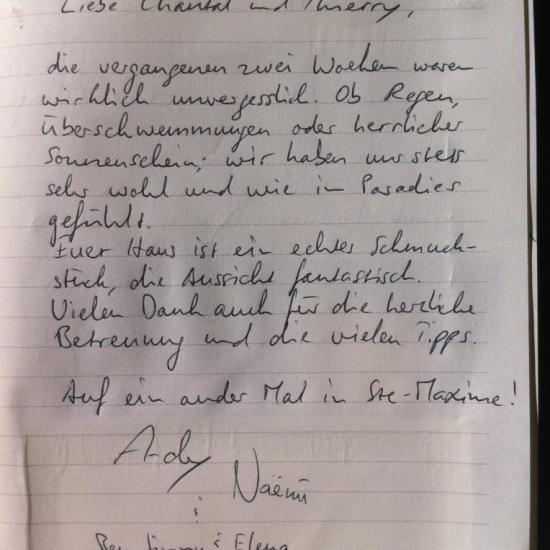 Liebe Chantal und Thierry,
die vergangenen zwei Wochen waren
wirklich unvergesslich. Ob Regen,
Überschwemmungen oder herrlicher
Sonnenschein; wir haben uns stets
sehr wohl und wie im Paradies
gefühlt.
Euer Haus ist ein echtes Schmuck-
stück, die Aussicht fantastisch.
Vielen Dank auch für die herzliche
Betreuung und die vielen Tipps.
Auf ein ander Mal in Ste-Maxime!
Andy
Naëmi
Elena